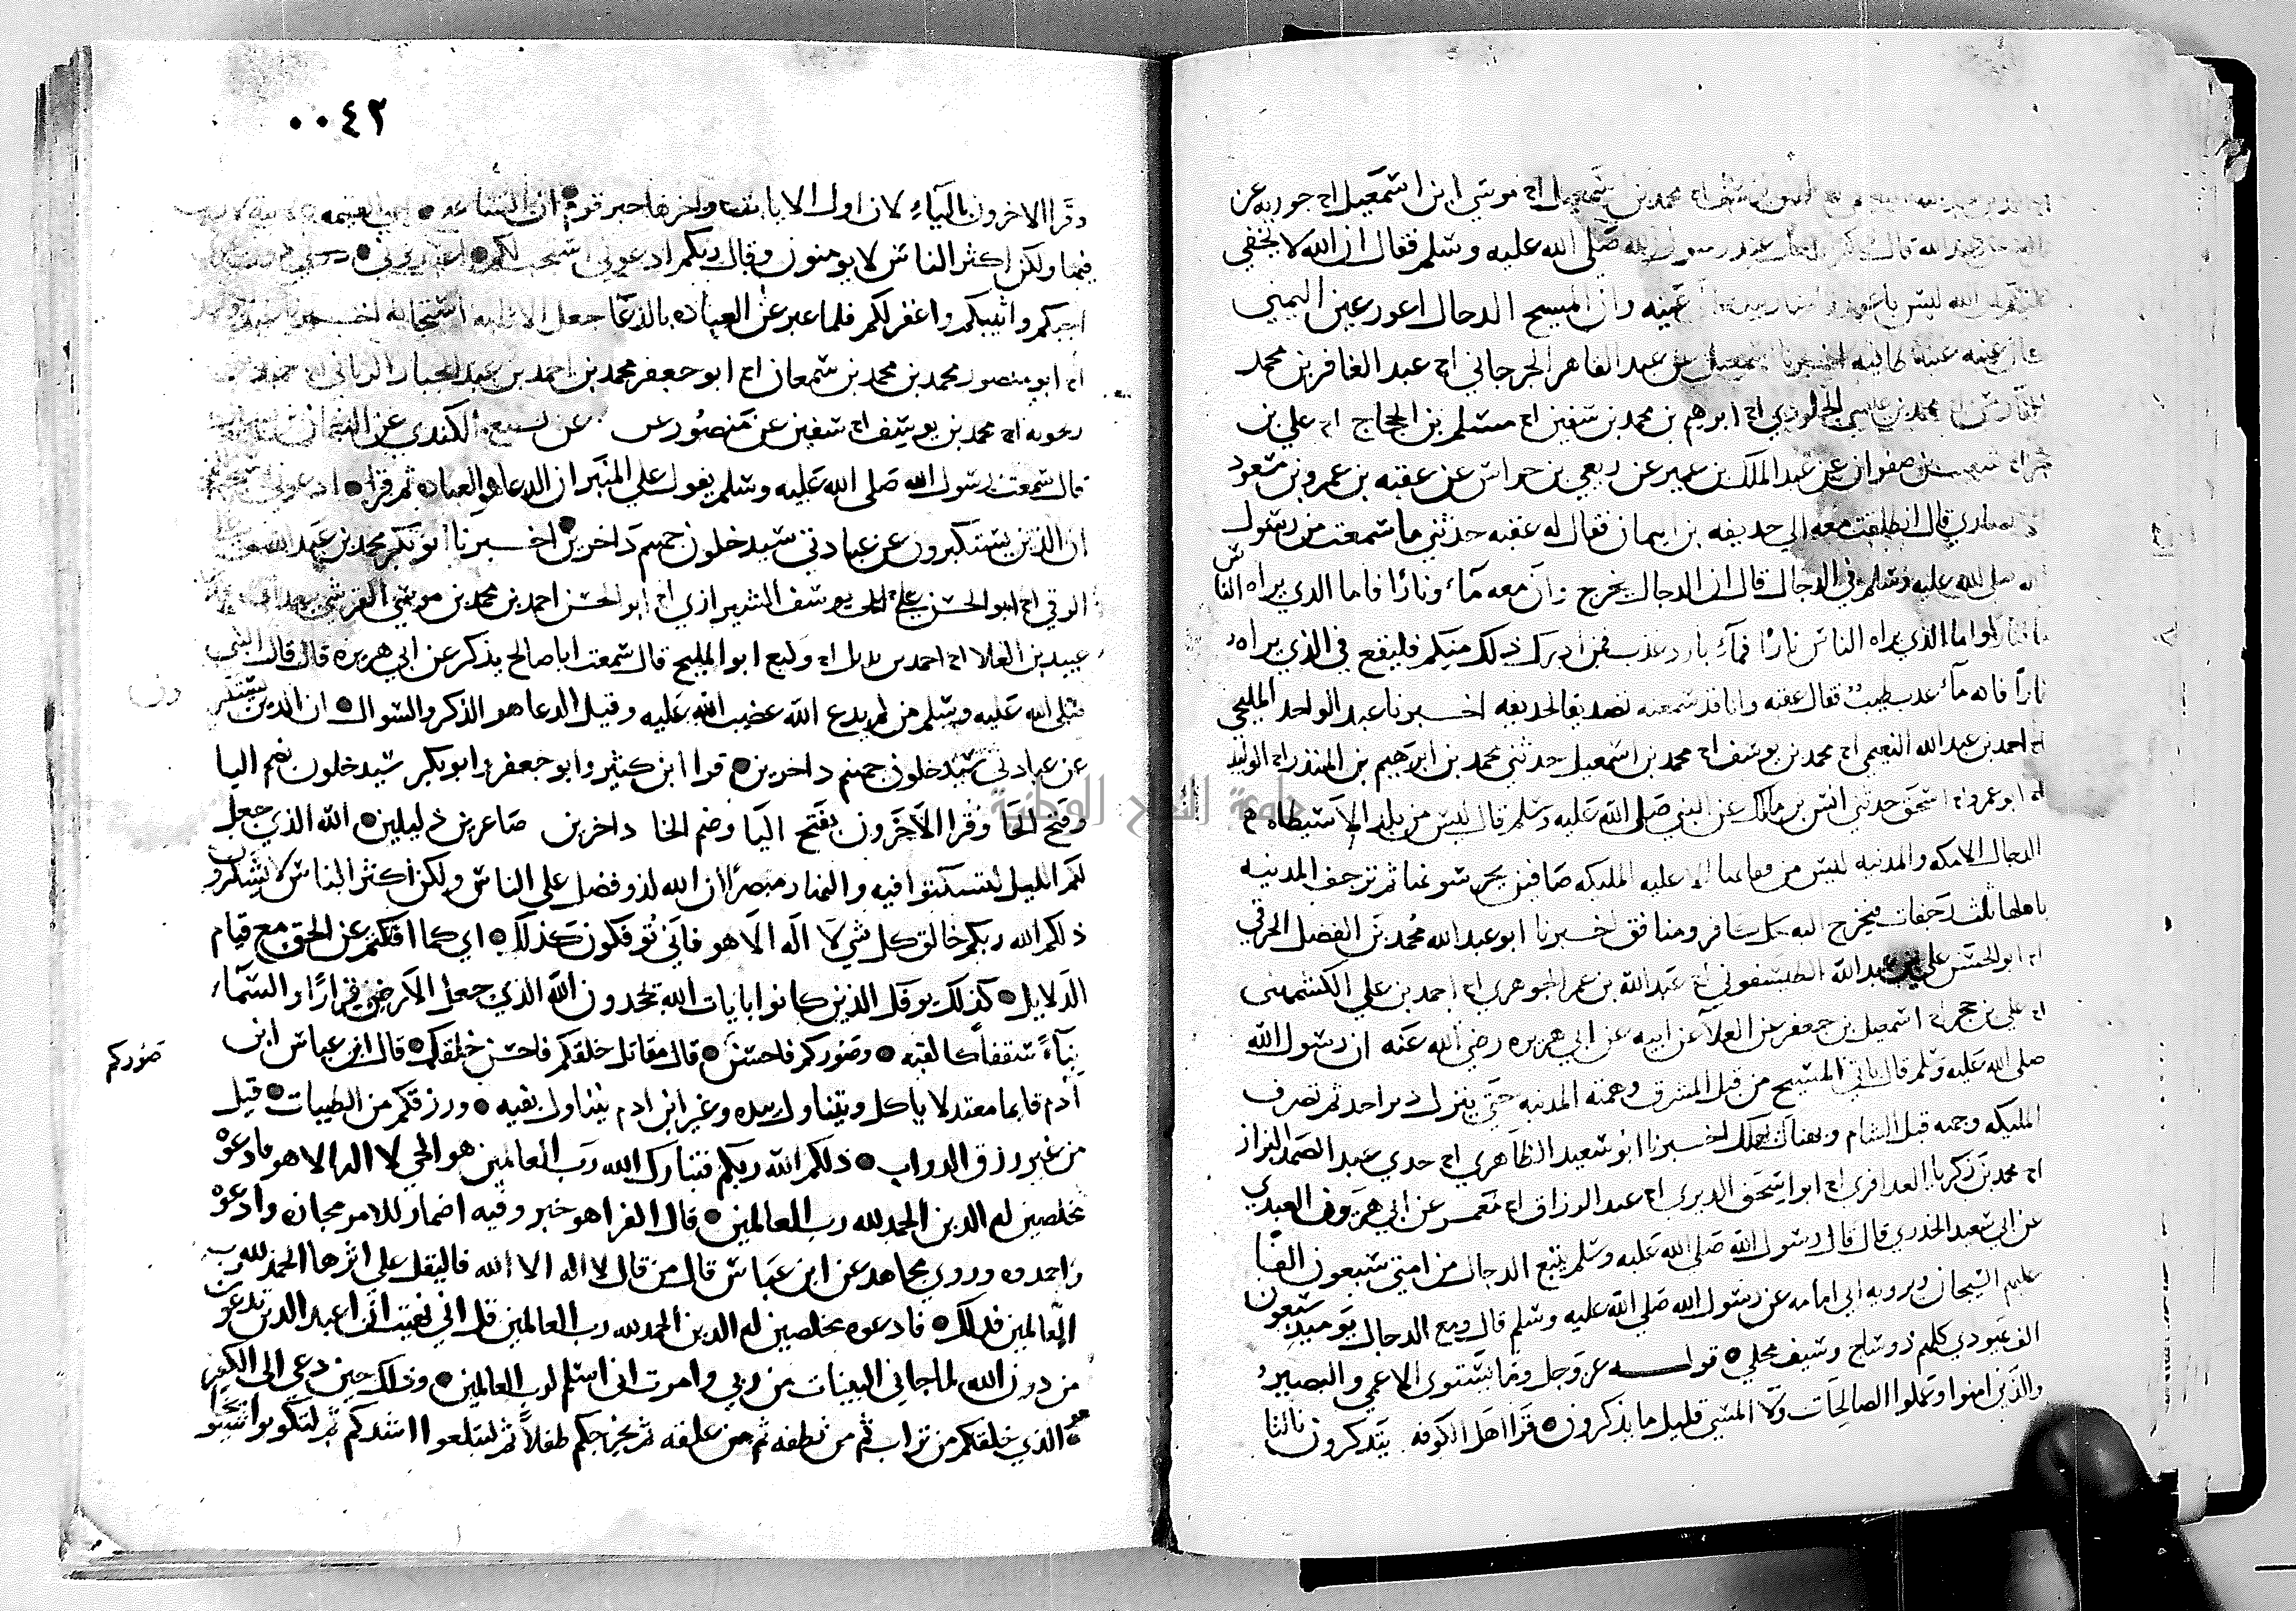 محمد بن اسمعيل اح موسي ابن اسمعيل اح جوريه عن
عبد الله قال رسول الله صلي الله عليه وسلم فقال ان الله لا يخفي
الله ليس باعور عينه وان المسيح الدجال اعور عين اليمني
عنبه طافيه اخبرنا اسمعيل بن عبد القاهر الجرجاني اح عبد الغافر بن محمد
محمد بن عيسي الجلودي اح ابرهيم بن محمد بن سفين اح مسلم بن الحجاج اح علي بن
شعيب بن صفوان عن عبد الملك بن عمير عن ربعي بن حراش عن عقبه بن عمرو بن مسعود
قال انطلقت معه الي حديفه بن اليمان فقال له عقبه حدثني ما سمعت من رسول
الله صلي الله عليه وسلم في الدجال قال ان الدجال يخرج وان معه مآء ونارًا فاما الذي يراه الناس
واما الذي يراه الناس نارًا فمآء بارد عذب فمن ادرك ذلك منكم فليقع في الذي يراه
نارًا فانه مآء عذب طيب فقال عقبه وانا قد سمعته تصديقا لحديفه اخبرنا عبد الواحد المليحي
اح احمد بن عبد الله النعيمي اح محمد بن يوسف اح محمد بن اسمعيل حدثني محمد بن ابرهيم بن المنذر اح الوليد
اح ابو عمرو اح اسحق حدثني انس بن مالك عن النبي صلي الله عليه وسلم قال ليس من بلد الا سيطاه
الدجال الا مكه والمدينه ليس من عليه المليكه صافين يحرسونها ثم ترجف المدينه
باهلها ثلث رجفات فيخرج اليه كل كافر ومنافق اخبرنا ابو عبد الله محمد بن الفضل الخرقي
اح ابو الحسن علي بن عبد الله الطيسفوني اح عبد الله بن عمر الجوهري اح احمد بن علي الكشميهني
اح علي بن حجر اح اسمعيل بن جعفر عن العلآ عن ابيه عن ابي هريره رضي الله عنه ان رسول الله
صلي الله عليه وسلم قال ياتي المسيح من قبل المشرق وهمته المدينه حتي ينزل دبر احد ثم تصرف
المليكه وجهه قبل الشام وهناك يهلك اخبرنا ابو سعيد الطاهري اح جدي عبد الصمد البزاز
اح محمد بن زكريا العذافري اح ابو اسحق الدبري اح عبد الرزاق اح معمر عن ابي هرون العبدي
عن ابي سعيد الخدري قال قال رسول الله صلي الله عليه وسلم يتبع الدجال من امتي سبعون الفًا
عليهم السيجان ويرويه ابي امامه عن رسول الله صلي الله عليه وسلم قال ومع الدجال يوميذ سبعون
الف يهودي كلهم ذو ساج وسيف محلي قوله عز وجل وما يستوي الاعمي والبصير
والذين امنوا وعملوا الصالحات ولا المسي قليل ما يذكرون قرا اهل الكوفه يتذكرون بالتا
٠٠٤٢
وقرا الاخرون بالياء لان اول الايات واخرها خبر قوم ان الساعه
فيها ولكن اكثر الناس لا يومنون وقال ربكم ادعوني استجب لكم
اجبكم واثيبكم واغفر لكم فلما عبر عن العباده بالدعا جعل الاثابه استجابه اخبرنا
اح ابو منصور محمد بن محمد بن سمعان اح ابو جعفر محمد بن احمد بن عبد الجبار الرياني اح
محمد بن يوسف اح سفين عن منصور عن الكندي عن النعمان
قال سمعت رسول الله صلي الله عليه وسلم يقول علي المنبر ان الدعا هو العباده ثم قرا ادعوني
ان الذين يستكبرون عن عبادتي سيدخلون جهنم داخرين اخبرنا ابو بكر محمد بن عبد الله
اح ابو الحسن علي بن يوسف الشيرازي اح ابو الحسن احمد بن محمد بن موسي القرشي
عبيد بن العلا اح احمد بن بديل اح وكيع ابو المليح قال سمعت ابا صالح يذكر عن ابي هريره قال قال النبي
صلي الله عليه وسلم من لم يدع الله غضب الله عليه وقيل الدعا هو الذكر والسوال ان الذين يستكبرون
عن عبادتي سيدخلون جهنم داخرين قرا ابن كثير وابو جعفر وابو بكر سيدخلون بضم اليا
وفتح الخا وقرا الاخرون بفتح اليا وضم الخا داخرين صاغرين ذليلين الله الذي جعل
لكم الليل لتسكنوا فيه والنهار مبصرًا ان الله لذو فضل علي الناس ولكن اكثر الناس لا يشكرون
ذلكم الله ربكم خالق كل شي لا اله الا هو فاني توفكون كذلك اي كما افكتم عن الحق مع قيام
الدلايل كذلك يوفك الذين كانوا بايات الله يجحدون الله الذي جعل الارض قرارًا والسمآء
بنآءً سقفًا كالقبه وصوركم فاحسن قال مقاتل خلقكم فاحسن خلقكم قال ابن عباس ابن
صوركم
آدم قايما معتدلا ياكل ويتناول بيده وغير ابن ادم يتناول بفيه ورزقكم من الطيبات قيل
من غير رزق الدواب ذلكم الله ربكم فتبارك الله رب العالمين هو الحي لا اله الا هو فادعوه
مخلصين له الدين الحمد لله رب العالمين قال الفرا هو خبر وفيه اضمار للامر مجازه وادعوه
واحمدوه وروي مجاهد عن ابن عباس قال من قال لا اله الا الله فاليقل علي اثرها الحمد لله رب
العالمين فذلك فادعوه مخلصين له الدين الحمد لله رب العالمين قل اني نهيت ان اعبد الذين تدعون
من دون الله لما جاني البينات من ربي وامرت ان اسلم لرب العالمين وذلك حين دعي الي الكفر
هو الذي خلقكم من تراب ثم من نطفه ثم من علقه ثم يخرجكم طفلًا ثم لتبلغوا اشدكم ثم لتكونوا شيوخا